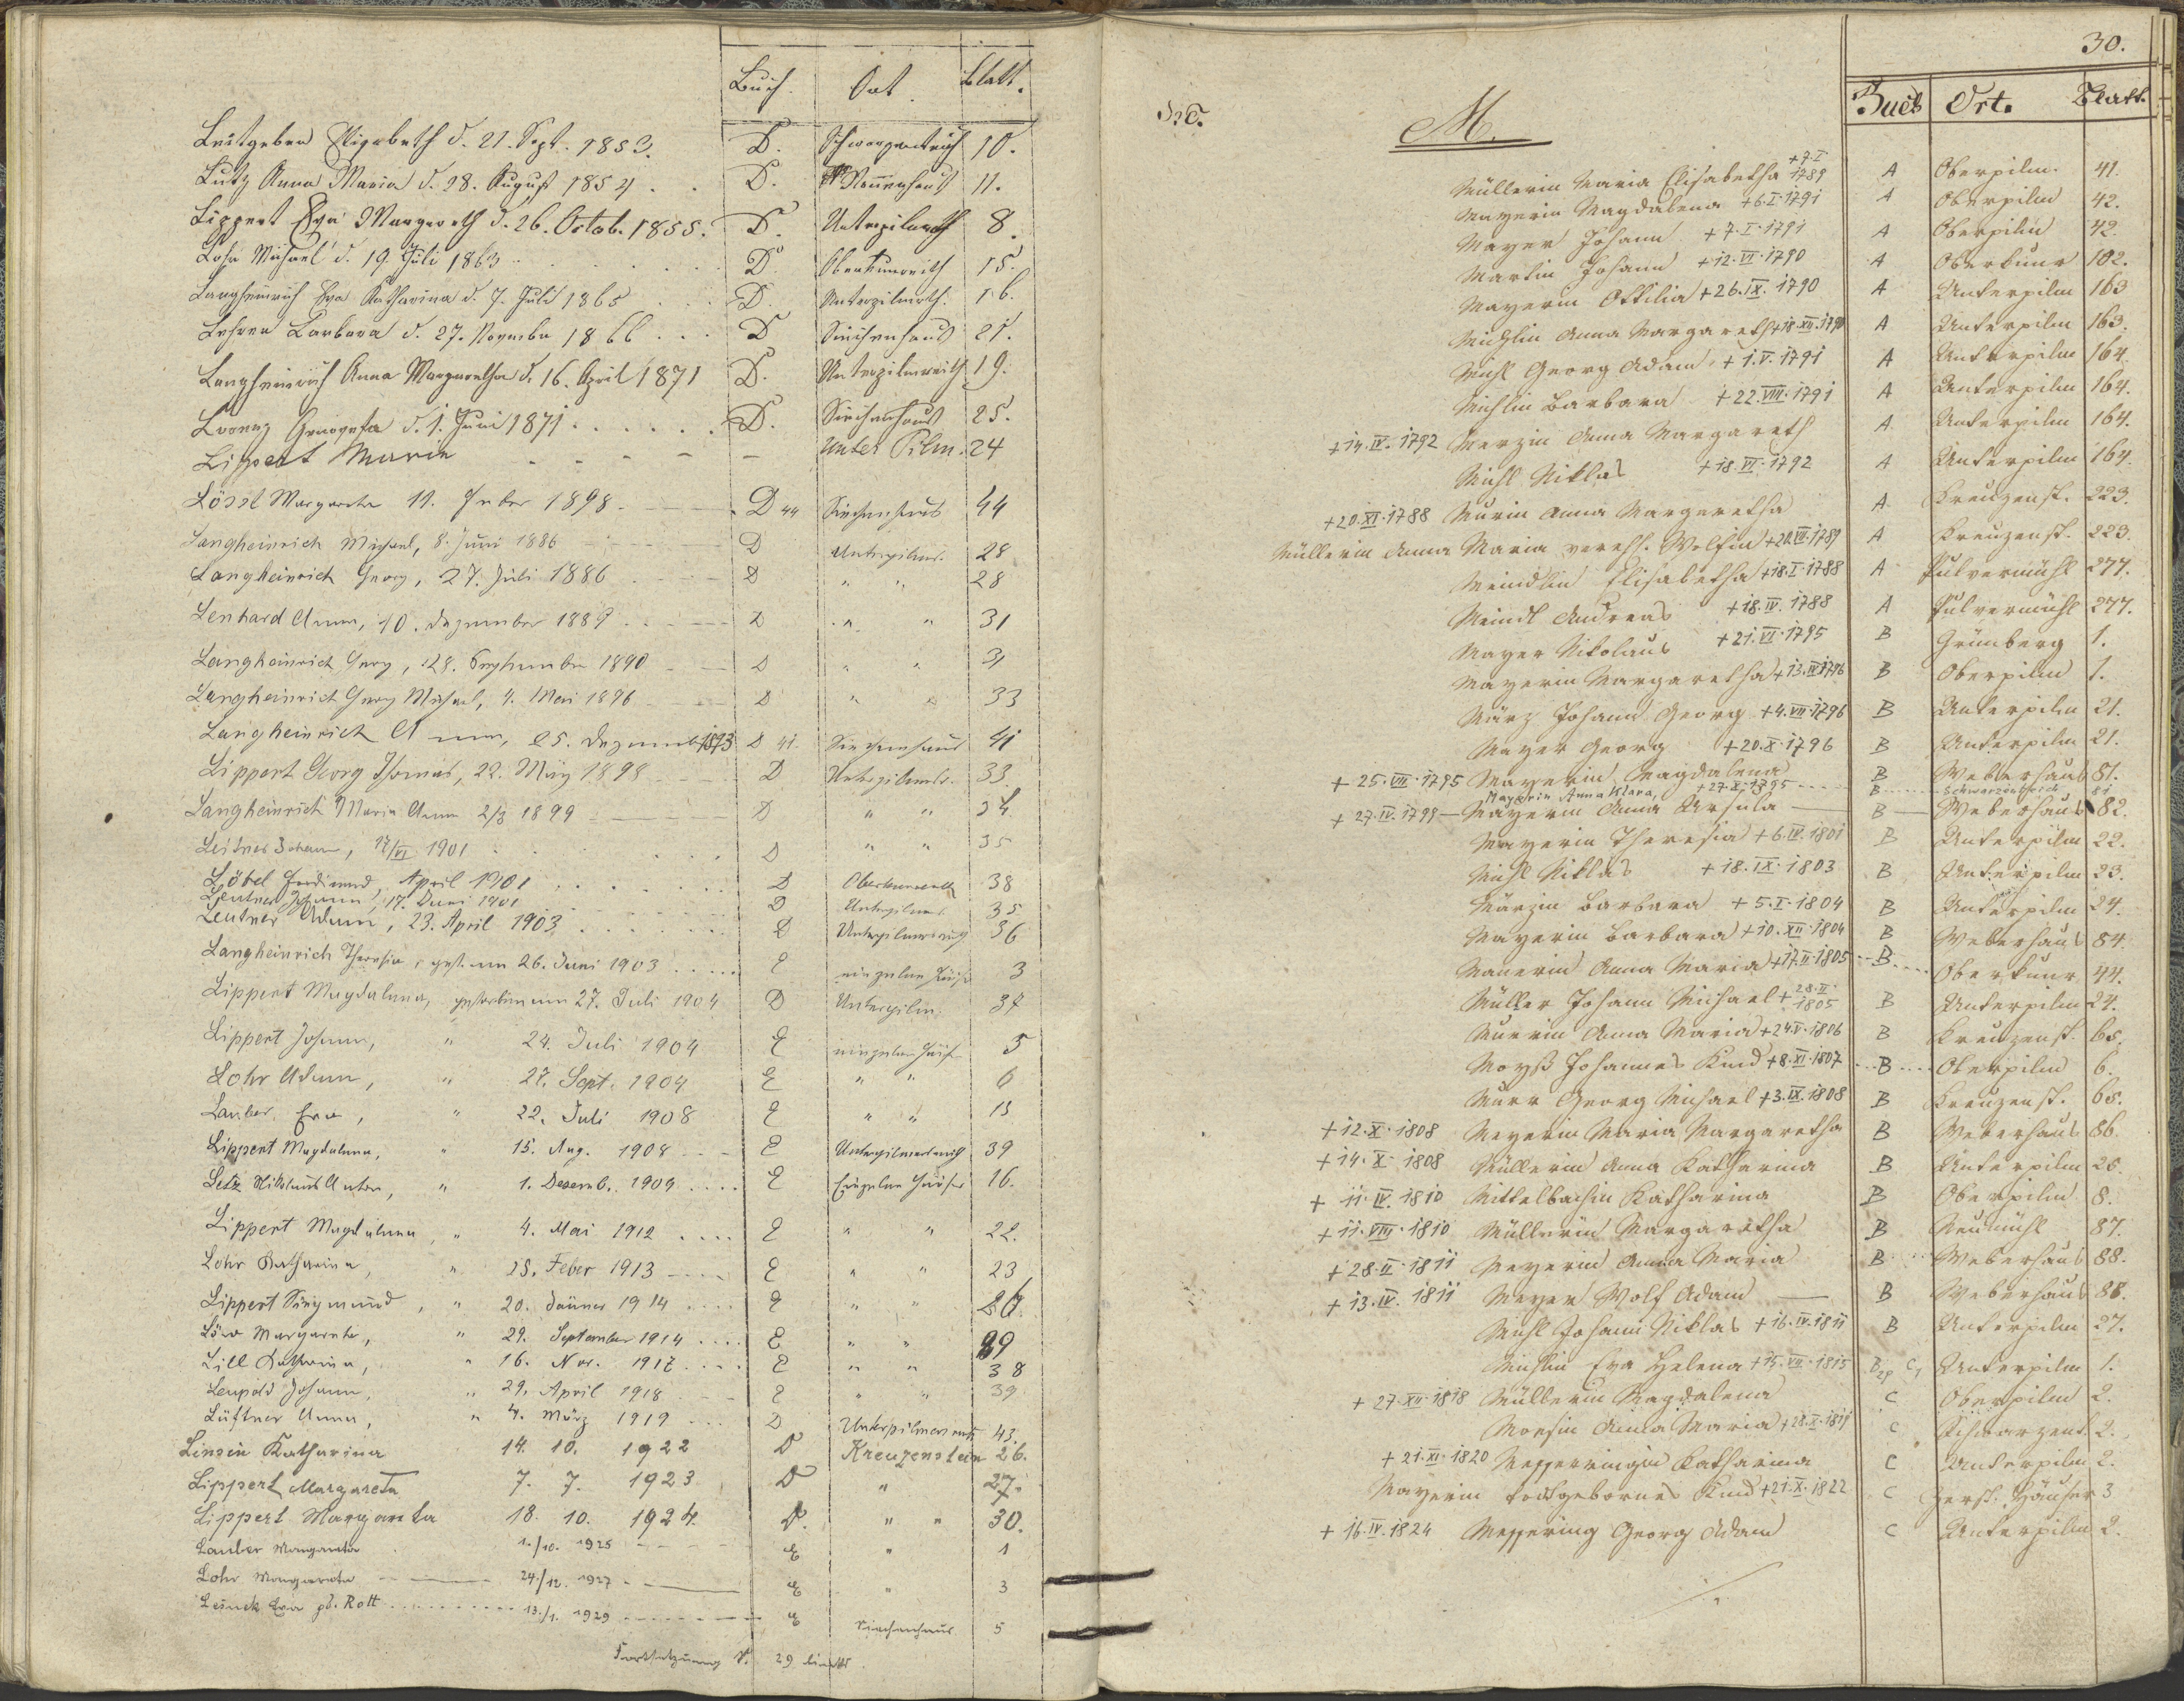 Buch. Ort. Blatt.
Leutgeben Elisabeth d. 21. Sept. 1853. D. 10.
Lutz Anna Maria d. 28. August 1854 . . D. 11.
Lippert Eva Margareth d. 26. Octob. 1855. D. 8.
Lohr Michael d. 19. Juli 1863 D. 15.
Langheinrich Eva Katharina d. 7. Juli 1865 D. Unterpilmrth. 16.
Barbara d. 27. Novembr 1866 . . . D Siechenhaus 21.
Langheinrich Anna Margaretha d. 16. April 1871 D. Unterpilmreith 19.
d. 1. Juni 1871 . . . . . . D. Siechenhaus 25.
Lippert Maria - - - - - Unter Pilm. 24
Lössl Margareta 11. Feber 1898 - D 44 Siechenhaus 44
Langheinrich Michael, 8. Juni 1886 D Unterpilmr. 28
Langheinrich Georg, 27. Juli 1886 D " " 28
Lenhard Anna, 10. Dezember 1889 D " " 31
Langheinrich Georg, 28. September 1890 D " " 31
Langheinrich Georg Michael, 4. Mai 1896 D " " 33
Langheinrich Anna, 25. Dezemb 1893 D 41. Siechenhaus 41
Lippert Georg Thomas, 22. März 1898 D Unterpilmr. 33
Langheinrich Maria Anna 2/3 1899 D " " 34.
Leitner Johann, 17/VI 1901 D " " 35
Löbel Ferdinand, April 1901 D 38
Leutner Johann, 17. Juni 1901 D Unterpilmr. 35
Leutner Adam, 23. April 1903 D Unterpilmersreuth 36
Langheinrich Theresia, gest. am 26. Juni 1903 E einzelne Häuser 3
Lippert Magdalena, gestorben am 27. Juli 1904 D Unterpilm. 37
Lippert Johann, " 24. Juli 1904 E einzelne Häuser 5
Lohr Adam, " 27. Sept. 1904 E " " 6
Lauber Eva, " 22. Juli 1908 E " " 13
Lippert Magdalena, " 15. Aug. 1908 E Unterpilmersreuth 39
Letz Nikolaus Anton, " 1. Dezemb. 1909 E Einzelne Häuser 16.
Lippert Magdalena, " 4. Mai 1912 E " " 22.
Lohr Katharina, " 25. Feber 1913 E " " 23
Lippert Siegmund, " 20. Jänner 1914 E " "
Löw Margareta, " 29. September 1914 E " " 29
Lill Katharina, " 16. Nov. 1917 E " " 38
Leupold Johann, " 29. April 1918 E " " 39
Lüftner Anna, " 4. März 1919 D Unterpilmersreuth 43.
Linsin Katharina 14. 10. 1922 D Kreuzenstein 26.
Lippert Margareta 7. 7. 1923 D " 27.
Lippert Margareta 18. 10. 1924. D. " " 30.
Lauber Margareta 1./10. 1925 E " 1
Lohr Margareta 24./12. 1927 E " 3
Leinck Eva gb. Rott 13./1. 1929 E Siechenhaus 5
Fortsetzung S. 29 links
30.
M. Buch Ort. Blatt.
Müllerin Maria Elisabetha +7.I 1789 A Oberpilm. 41.
Mayerin Magdalena +6.I.1791 A Oberpilm 42.
Mayer Johann +7.I.1791 A Oberpilm 42.
Martin Johann +12.VI.1790 A Oberkunr 102.
Mayerin Ottilia +26.IX.1790 A Unterpilm 163
Michlin Anna Margareth +18.XII.1790 A Unterpilm 163.
Michl Georg Adam + 1.V.1791 A Unterpilm 164.
Michlin Barbara +22.VIII.1791 A Unterpilm 164.
+14.IV.1792 Merzin Anna Margareth A Unterpilm 164.
Michl Niklas +18.VI.1792 A Unterpilm 164.
+20.XI.1788 Murin Anna Margaretha A Kreuzenst. 223.
Müllerin Anna Maria verehl. Wolfin +20.VII.1789 A Kreuzenst. 223.
Meindlin Elisabetha +18.I.1788 A Pulvermühl 277.
Meindl Andreas +18.IV.1788 A Pulvermühl 277.
Mayer Nikolaus +21.VI.1795 B Grünberg 1.
Mayerin Margaretha +13.IV.1796 B Oberpilm 1.
März Johann Georg +4.VII.1796 B Unterpilm 21.
Mayer Georg +20.X.1796 B Unterpilm 21.
+ 25.VII.1795 Mayerin Magdalena B Weberhaus 81.
Mayerin Anna Klara, +27.X.1795 B 81
+ 27.IV.1799 Mayerin Anna Ursula B Weberhaus 82.
Mayerin Theresia +6.IV.1801 B Unterpilm 22.
Michl Niklas +18.IX.1803 B Unterpilm 23.
Märzin Barbara +5.I.1804 B Unterpilm 24.
Mayerin Barbara +10.XII.1804 B Weberhaus 84.
Anna Maria +17.II.1805 B Oberkunr 44.
Müller Johann Michael + 28.II. 1805 B Unterpilm 24.
Murrin Anna Maria +24.V.1806 B Kreuzenst. 65.
Moyß Johannes Kind +8.XI.1807 B Oberpilm 6.
Murr Georg Michael +3.IX.1808 B Kreuzenst. 65.
+12.X.1808 Meyerin Maria Margaretha B Weberhaus 86.
+14.X.1808 Müllerin Anna Katharina B Unterpilm 26.
+ 11.IV.1810 Mittelbachin Katharina B Oberpilm 8.
+11.VIII.1810 Müllerin Margaretha B Neumühl 87.
+28.II.1811 Meyerin Anna Maria B Weberhaus 88.
+13.IV.1811 Meyer Wolf Adam B Weberhaus 88.
Michl Johann Niklas +16.IV.1811 B Unterpilm 27.
Michlin Eva Helena +15.VII.1815 Unterpilm 1.
+ 27.XII.1818 Müllerin Magdalena C Oberpilm 2.
Anna Maria +28.X.1819 C Schwarzent. 2.
+21.XI.1820 Katharina C Unterpilm 2.
Mayerin todtgebornes Kind +21.X.1822 C Zerst. Häuser 3
+16.IV.1824 Messering Georg Adam C Unterpilm 2.